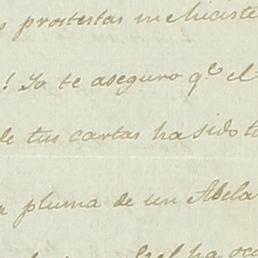 s prostestas me hiciste
! Yo te aseguro q.e el
de tus cartas ha sido t
pluma de un Abela
ha